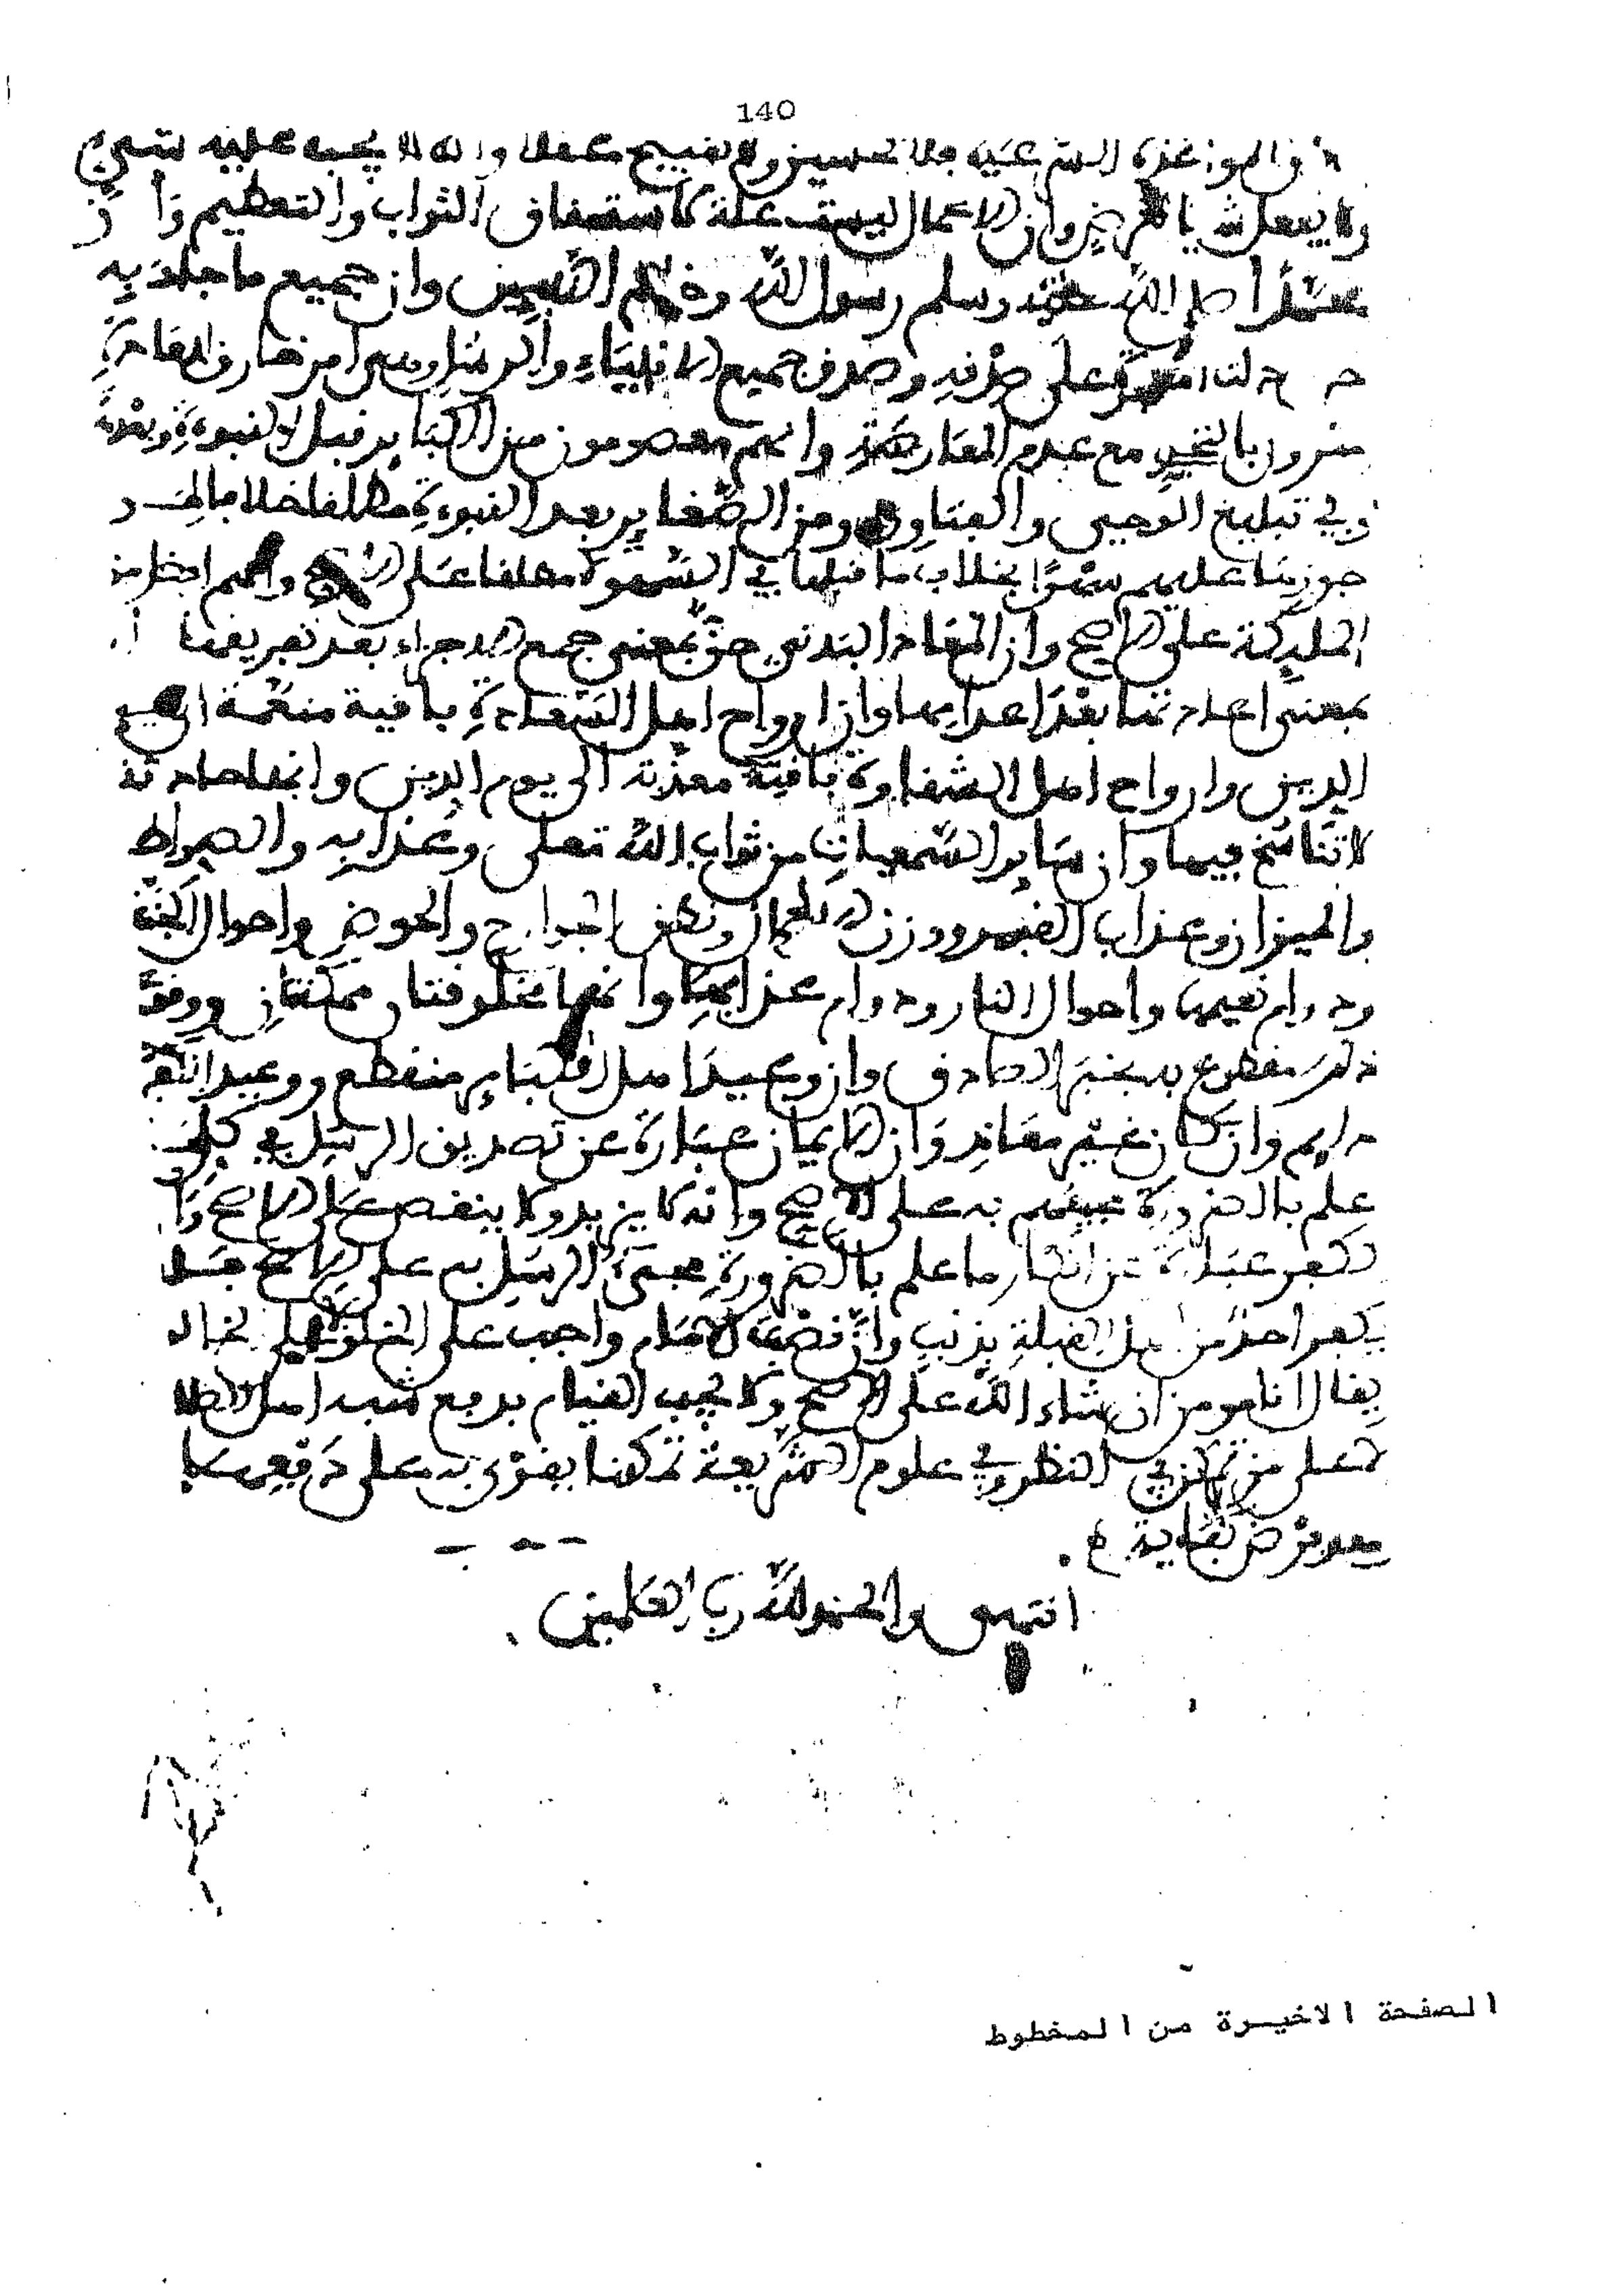 140
والمواخذة الشرعية فلا تحسين ولا تقبيح عقلا وانه لا يجب عليه شيء
ولا يفعل شيا لغرض وان الاعمال ليست علة لاستحقاق الثواب والتعظيم وأن
محمدا صلى الله عليه وسلم رسول الله وخاتم النبيين وان جميع ما جاء به
على صدقه وصدق جميع الانبياء والرسل وهي امر خارق للعادة
مقرون بالتحدي مع عدم المعارضة وانهم معصومون من الكباير قبل النبوءة وبعدها
وفي تبليغ الوحي والفتاوي ومن الصغاير بعد النبوءة مطلقا خلافا لمن
جوزها عليهم سهوا بخلاف ما قبلها في السهو مطلقا على الاصح وانهم افضل من
الملايكة على الاصح وان المعاد البدني حق بمعنى جمع الاجزاء بعد تفريقها أو
بمعنى اعادتها بعد اعدامها وان ارواح اهل السعادة باقية منعمة الى يوم
الدين وارواح اهل الشقاوة باقية معذبة الى يوم الدين وانها حادثة
لا تناسخ فيها وان ساير السمعيات من ثواب الله تعلى وعذابه والصراط
والميزان وعذاب القبر ووزن الاعمال ونطق الجوارح والحوض واحوال الجنة
ودوام نعيمها واحوال النار ودوام عذابها وانهما مخلوقتان ممكنتان ووقوع
ذلك مقطوع به بخبر الصادق وان وعيد اهل الكباير منقطع ووعيد الكفرة
دايم وان كان غير معاند وان الايمان عبارة عن تصديق الرسل في كل ما
علم بالضرورة مجيئهم به على الاصح وانه لا يزيد ولا ينقص على الاصح وأن
الكفر عبارة عن انكار ما علم بالضرورة مجيء الرسل به على الاصح فلا
يكفر احد من اهل القبلة بذنب وان نصب الامام واجب على الخلق
يقال انا مومن ان شاء الله على الاصح ولا يجب القيام بدفع شبه اهل الضلال
الا على من تمكن في النظر وفي علوم الشريعة تمكنا يقوى به على دفعها
فرض كفاية .
انتهى والحمد لله رب العلمين .
الصفحة الاخيرة من المخطوط